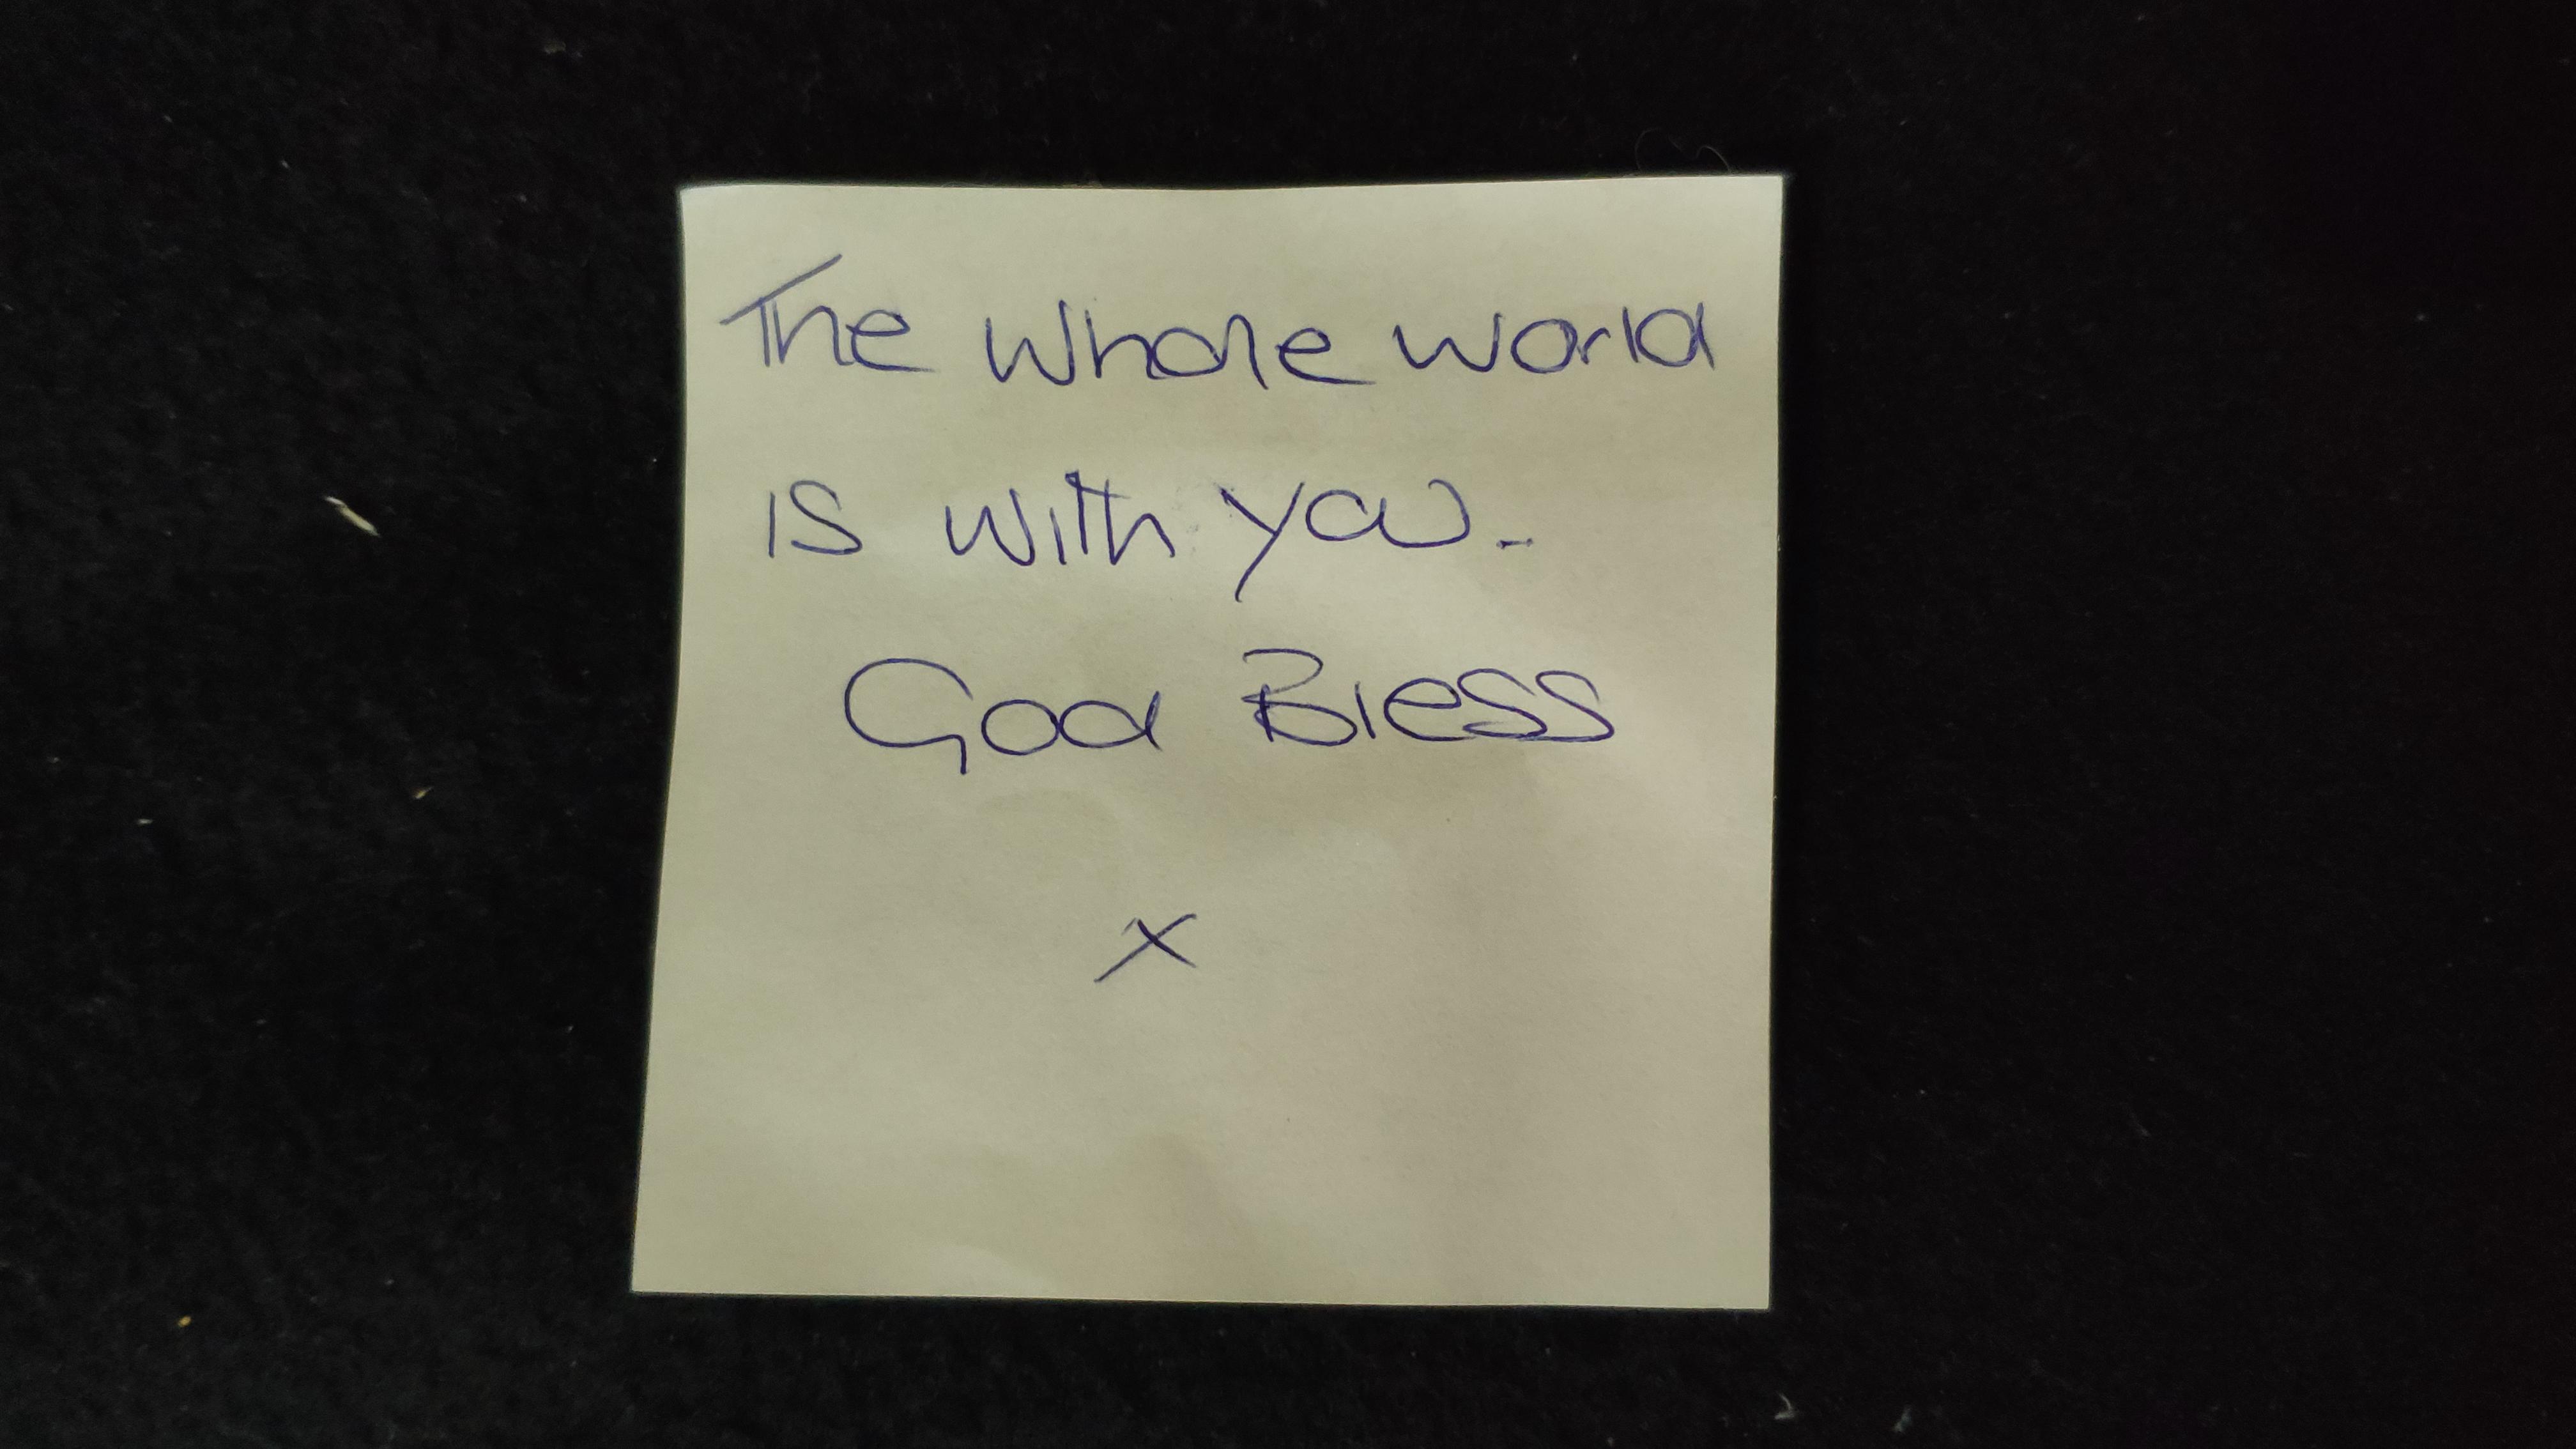 The whole world
is with you.
God Bless
x